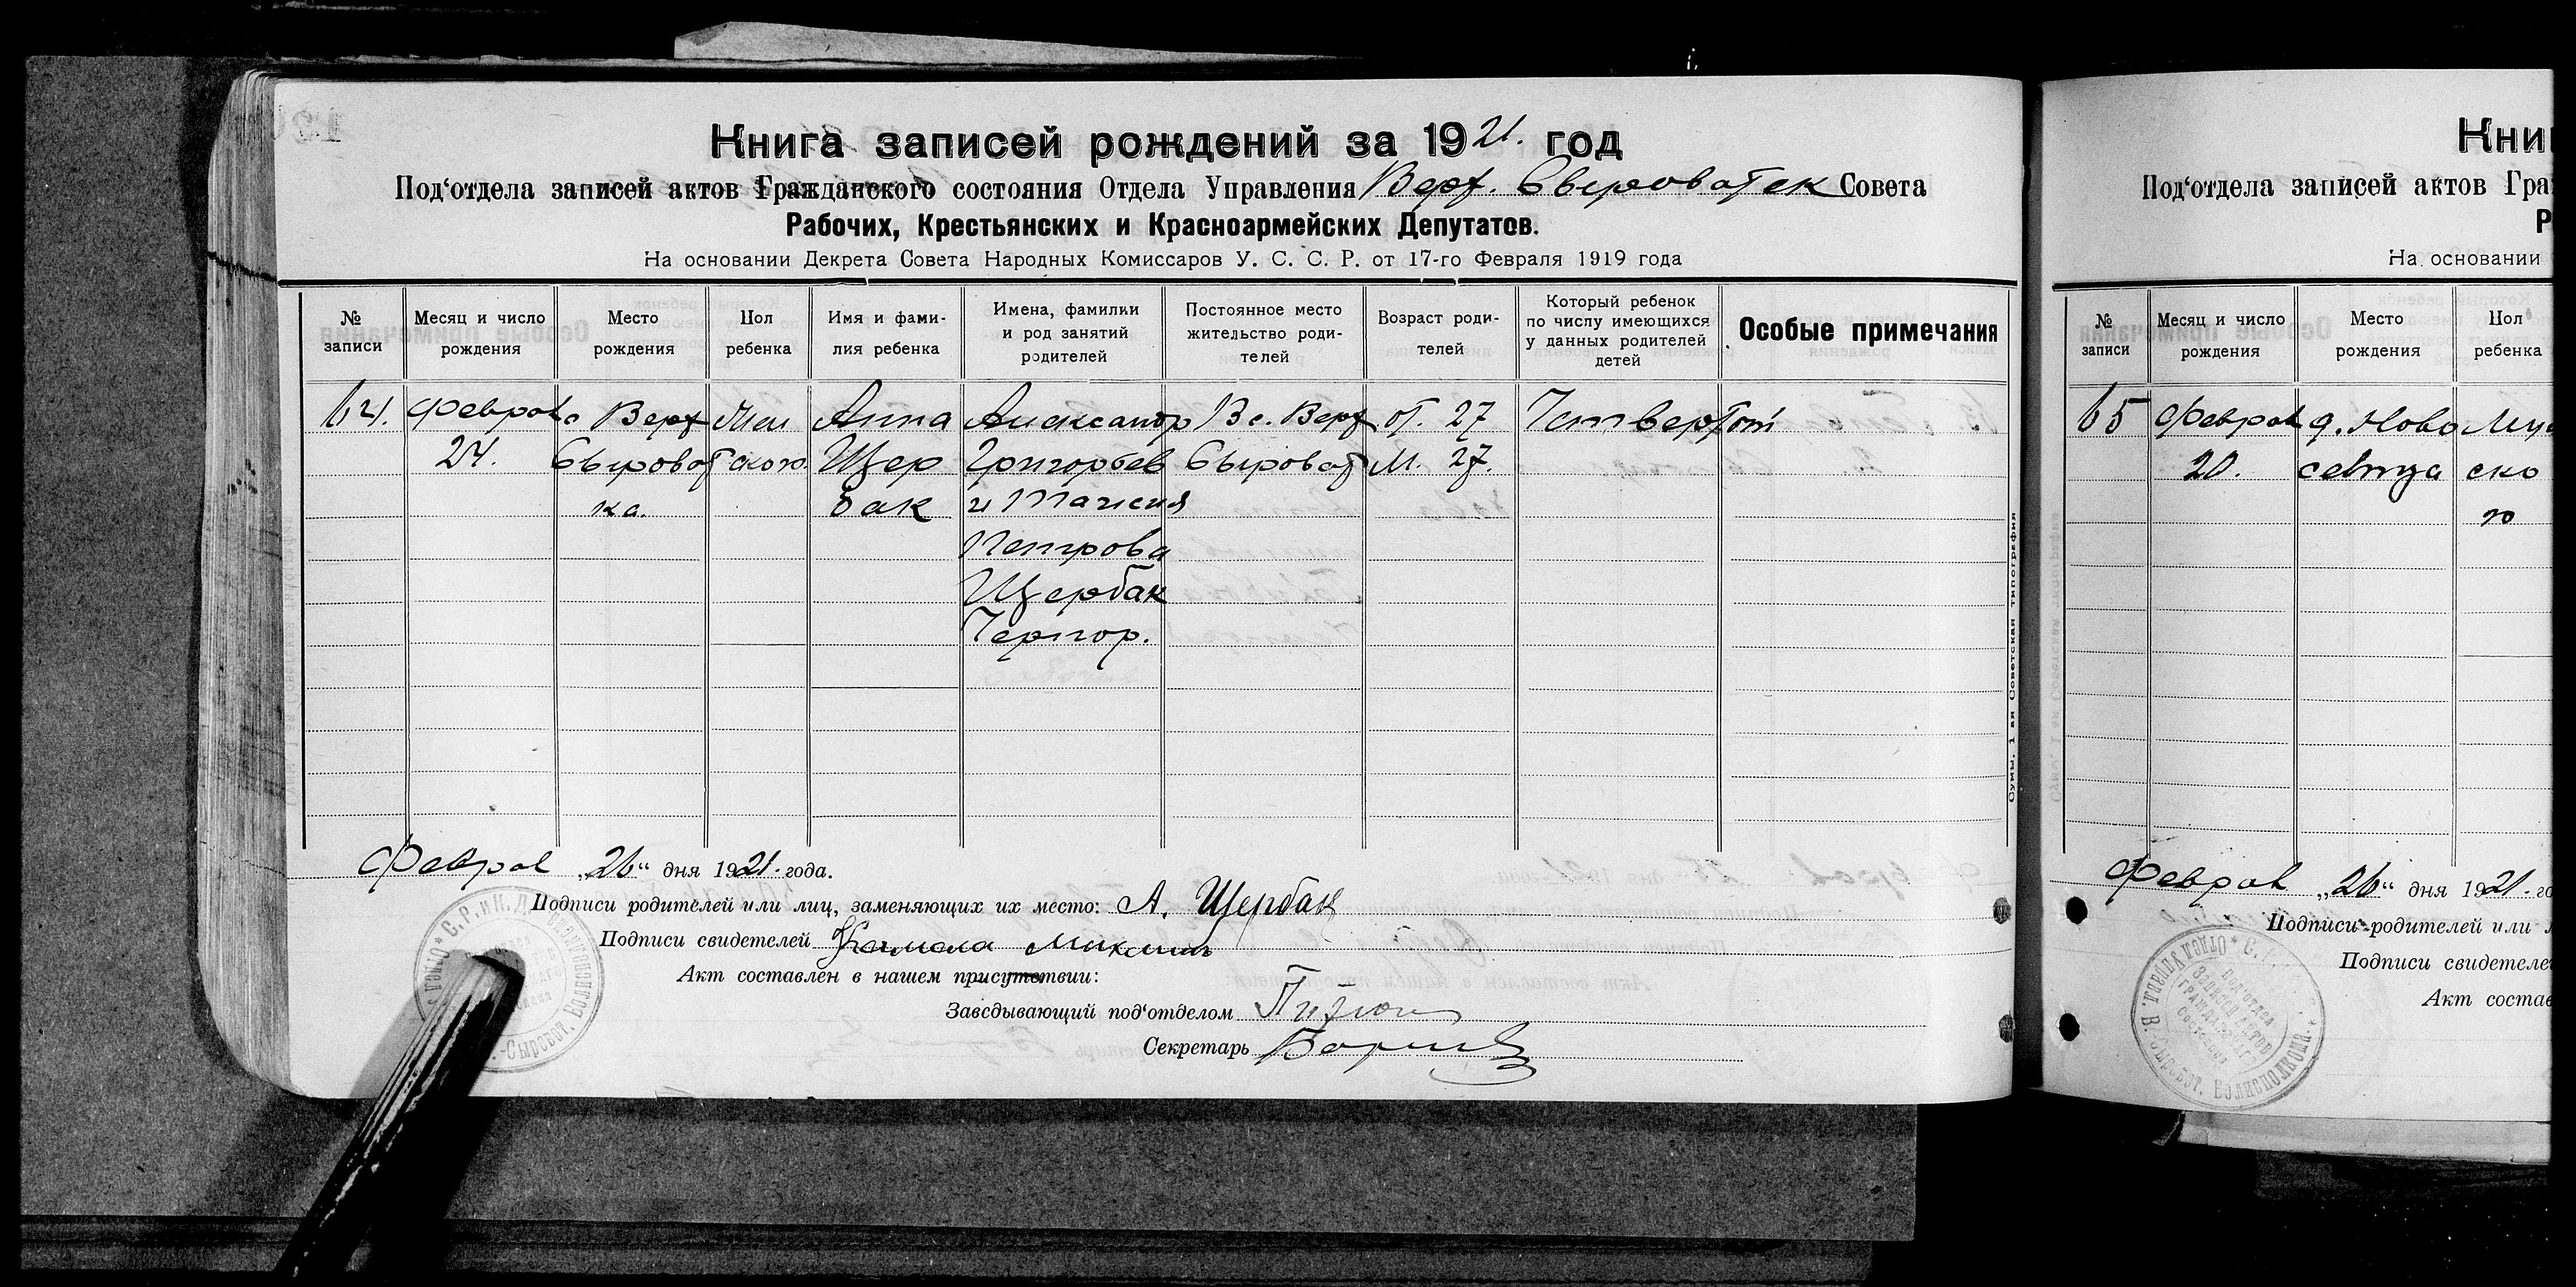 Книга записей рождений за 1921. год
Под‘отдела записей актов Гражданского состояния Отдела Управления Верх. Сыроватск Совета
Рабочих, Крестьянских и Красноармейских Депутатов.
На основании Декрета Совета Народных Комиссаров У. С. С. Р. от 17-го Февраля 1919 года
№ записи
Месяц и число рождения
Место рождения
Пол ребенка
Имя и фами-
лия ребенка
Имена, фамилии
и род занятий
родителей
Постоянное место
жительство роди-
телей
Возраст роди-
телей
Который ребенок
по числу имеющихся
у данных родителей
детей
Особые примечания
64. Феврал с Верх Жен Анна Александр В с. Верх от. 27 Четвертый
24. Сыроват ского Щер Григорьев Сыроват М. 27.
ка. бак и Таисия
Петрова
Щербак
Феврал „26“ дня 1921. года.
Подписи родителей или лиц, заменяющих их место: А. Щербак
Подписи свидетелей
Акт составлен в нашем присутствии:
Заведывающий под‘отделом
Секретарь
Сумы, 1-ая Советская типография
Кни
Под‘отдела записей актов Гра
Р
На основании
№ записи
Месяц и число рождения
Место рождения
Пол ребенка
65 Феврал д. Ново
20. севица ско
го
Феврал „26“ дня 1921. го
Подписи родителей или л
Подписи свидетеле
Акт состав